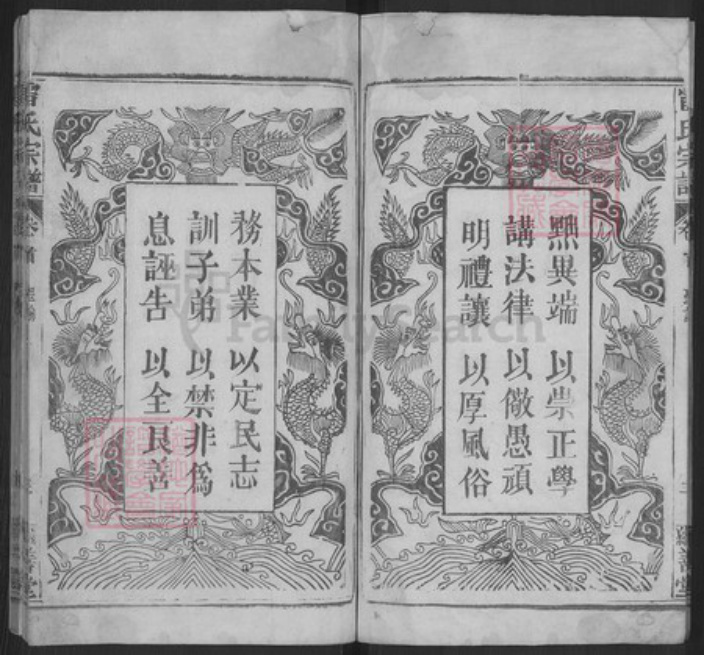 黜異端 以崇正學
講法律 以儆愚頑
明禮讓 以厚風俗
務本業 以定民志
訓子弟 以禁非爲
息誣告 以全良善
氏宗譜
卷首
FamilySearch